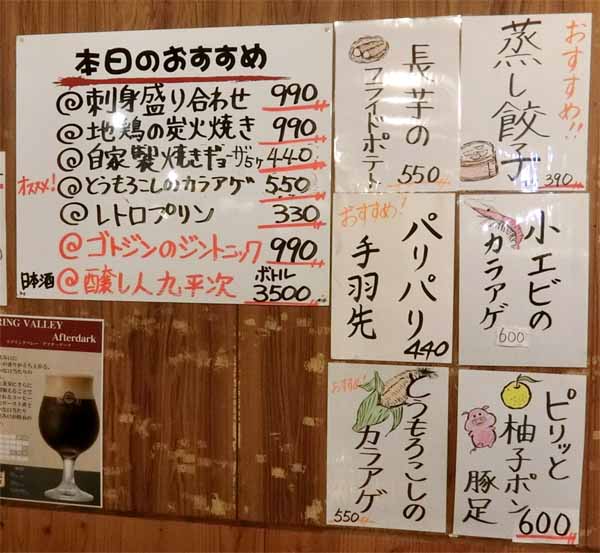 本日のおすすめ
@刺身盛り合わせ 990
@地鶏の炭火焼き 990
@自家製焼きギョーザ5ヶ 440
オススメ!
@とうもろこしのカラアゲ 550
@レトロプリン 330
@ゴトジンのジントニック 990
日本酒 @醸し人九平次 ボトル 3500
長芋の
フライドポテト
550
おすすめ!!
蒸し餃子
390
おすすめ!
パリパリ
手羽先
440
小エビの
カラアゲ
600
おすすめ!
とうもろこしの
カラアゲ
550
ピリッと
柚子ポン
豚足
600
RING VALLEY
Afterdark